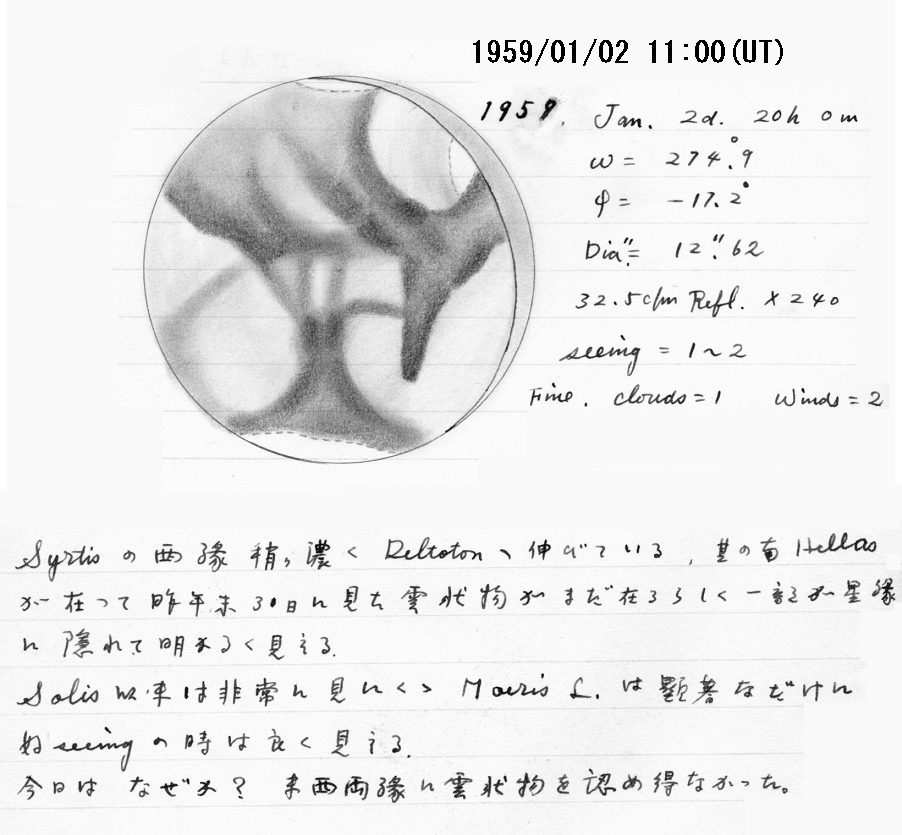 1959/01/02 11:00(UT)
1959. Jan. 2d. 20h 0m
ω = 274°.9
φ = -17.2°
Dia" = 12".62
32.5cm Refl. × 240
seeing = 1~2
Fine. clouds = 1 Winds = 2
Syrtis の西縁稍々濃く Deltoton へ伸びている, 其の南 Hellas
が在って昨年末30日に見た雲状物がまだ在るらしく一部が星縁
に隠れて明るく見える.
Solis 以来は非常に見にくい Moeris L. は顕著なだけに
好 seeing の時は良く見える.
今日はなぜか? 東西両縁に雲状物を認め得なかった。